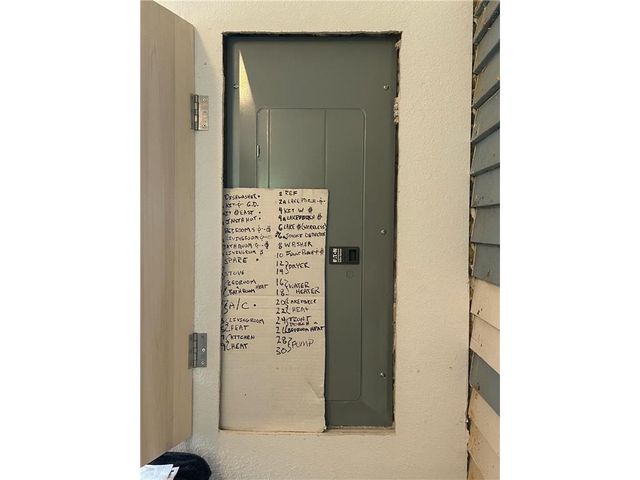 DISHWASHER •
KIT G.D.
KIT EAST •
INSTAHOT •
BEDROOMS
LIVINGROOM
BATHROOM
LIVINGROOM
SPARE •
STOVE
BEDROOM
BATHROOM HEAT
A/C •
LIVINGROOM
HEAT
KITCHEN
HEAT
2 REF
2A LAKE PORCH
4 KIT W
4A LAKE PORCH
6 LAKE (WIRELESS)
6A SMOKE DETECTOR
8 WASHER
10 FRONT PORCH
12 } DRYER
14
16 } WATER
18 } HEATER
20 LAKE PORCH
22 HEAT
24 FRONT
PORCH
26 BEDROOM HEAT
28 } PUMP
30